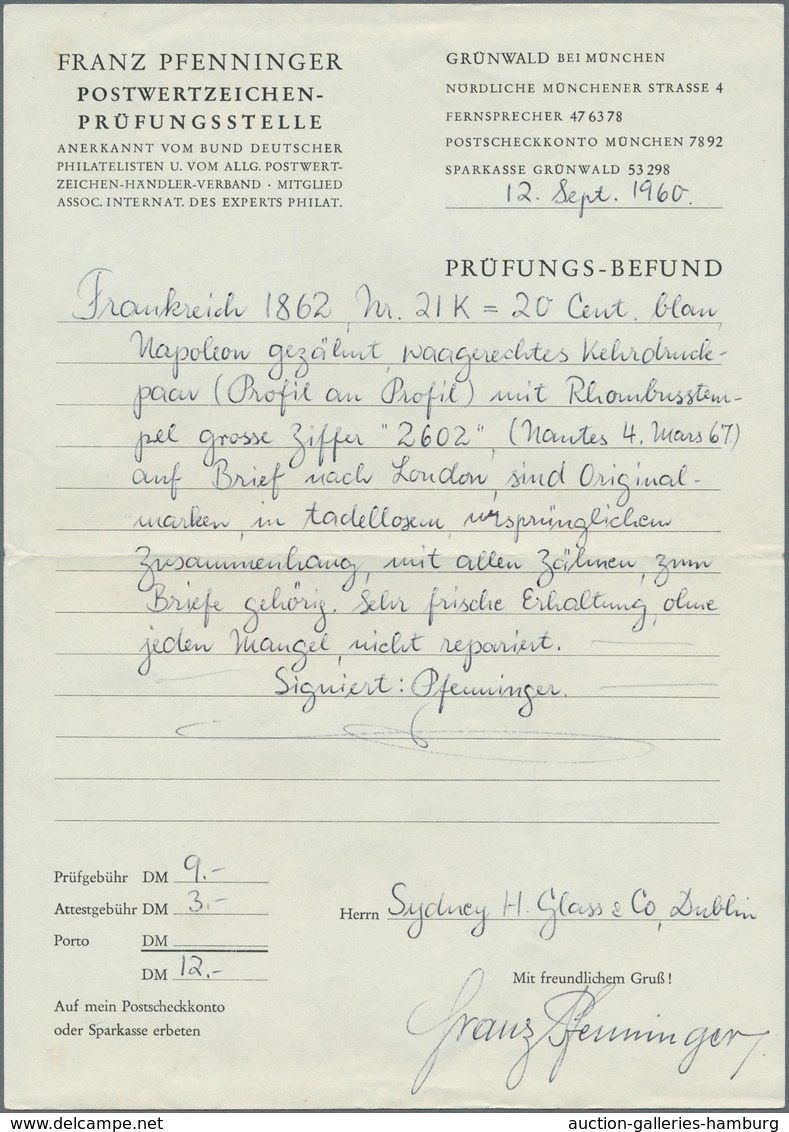 FRANZ PFENNINGER
POSTWERTZEICHEN-
PRÜFUNGSSTELLE
ANERKANNT VOM BUND DEUTSCHER
PHILATELISTEN U. VOM ALLG. POSTWERT-
ZEICHEN-HÄNDLER-VERBAND · MITGLIED
ASSOC. INTERNAT. DES EXPERTS PHILAT.
GRÜNWALD BEI MÜNCHEN
NÖRDLICHE MÜNCHENER STRASSE 4
FERNSPRECHER 47 63 78
POSTSCHECKKONTO MÜNCHEN 78 92
SPARKASSE GRÜNWALD 53 298
12. Sept. 1960.
PRÜFUNGS-BEFUND
Frankreich 1862, Nr. 21 K = 20 Cent. blau,
Napoleon gezähnt, waagerechtes Kehrdruck-
paar (Profil an Profil) mit Rhombusstem-
pel grosse Ziffer "2602", (Nantes 4. Mars 67.)
auf Brief nach London, sind Original-
marken, in tadellosem, ursprünglichem
Zusammenhang, mit allen Zähnen, zum
Briefe gehörig. Sehr frische Erhaltung, ohne
jeden Mangel, nicht repariert.
Signiert: Pfenninger.
Prüfgebühr DM 9.-
Attestgebühr DM 3.-
Porto DM
DM 12.-
Auf mein Postscheckkonto
oder Sparkasse erbeten
Herrn Sydney H. Glass & Co, Dublin
Mit freundlichem Gruß!
Franz Pfenninger.
www.delcampe.net
auction-galleries-hamburg